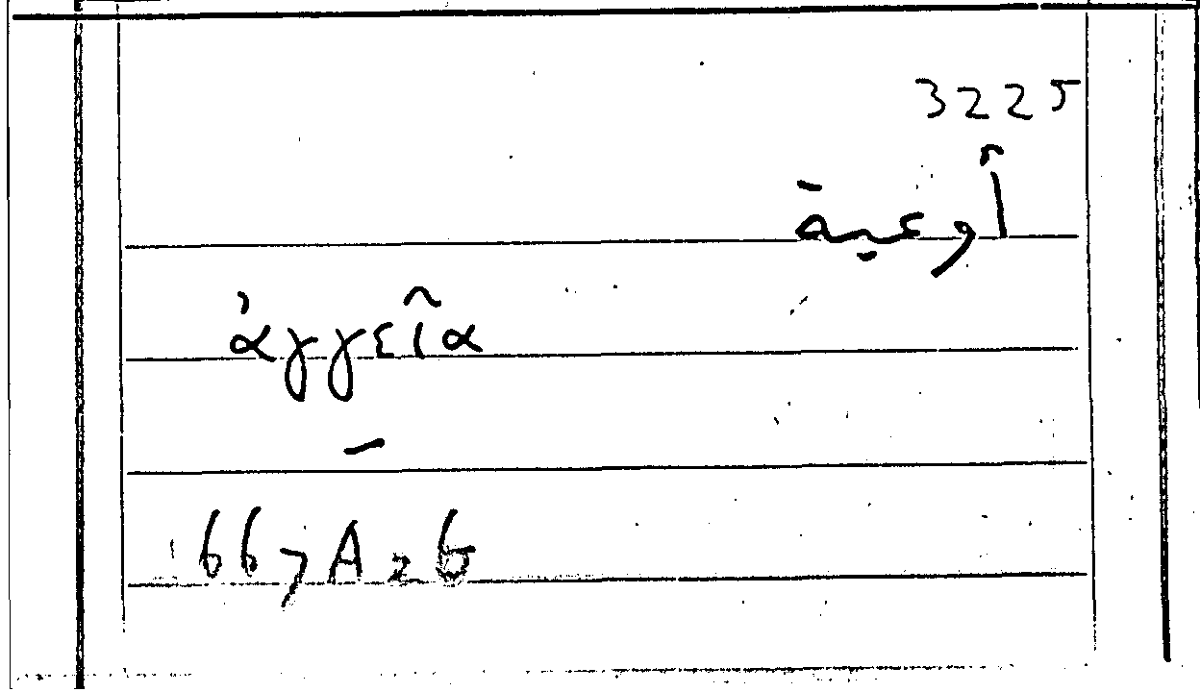 3225
أوعية
ἀγγεῖα
667A26